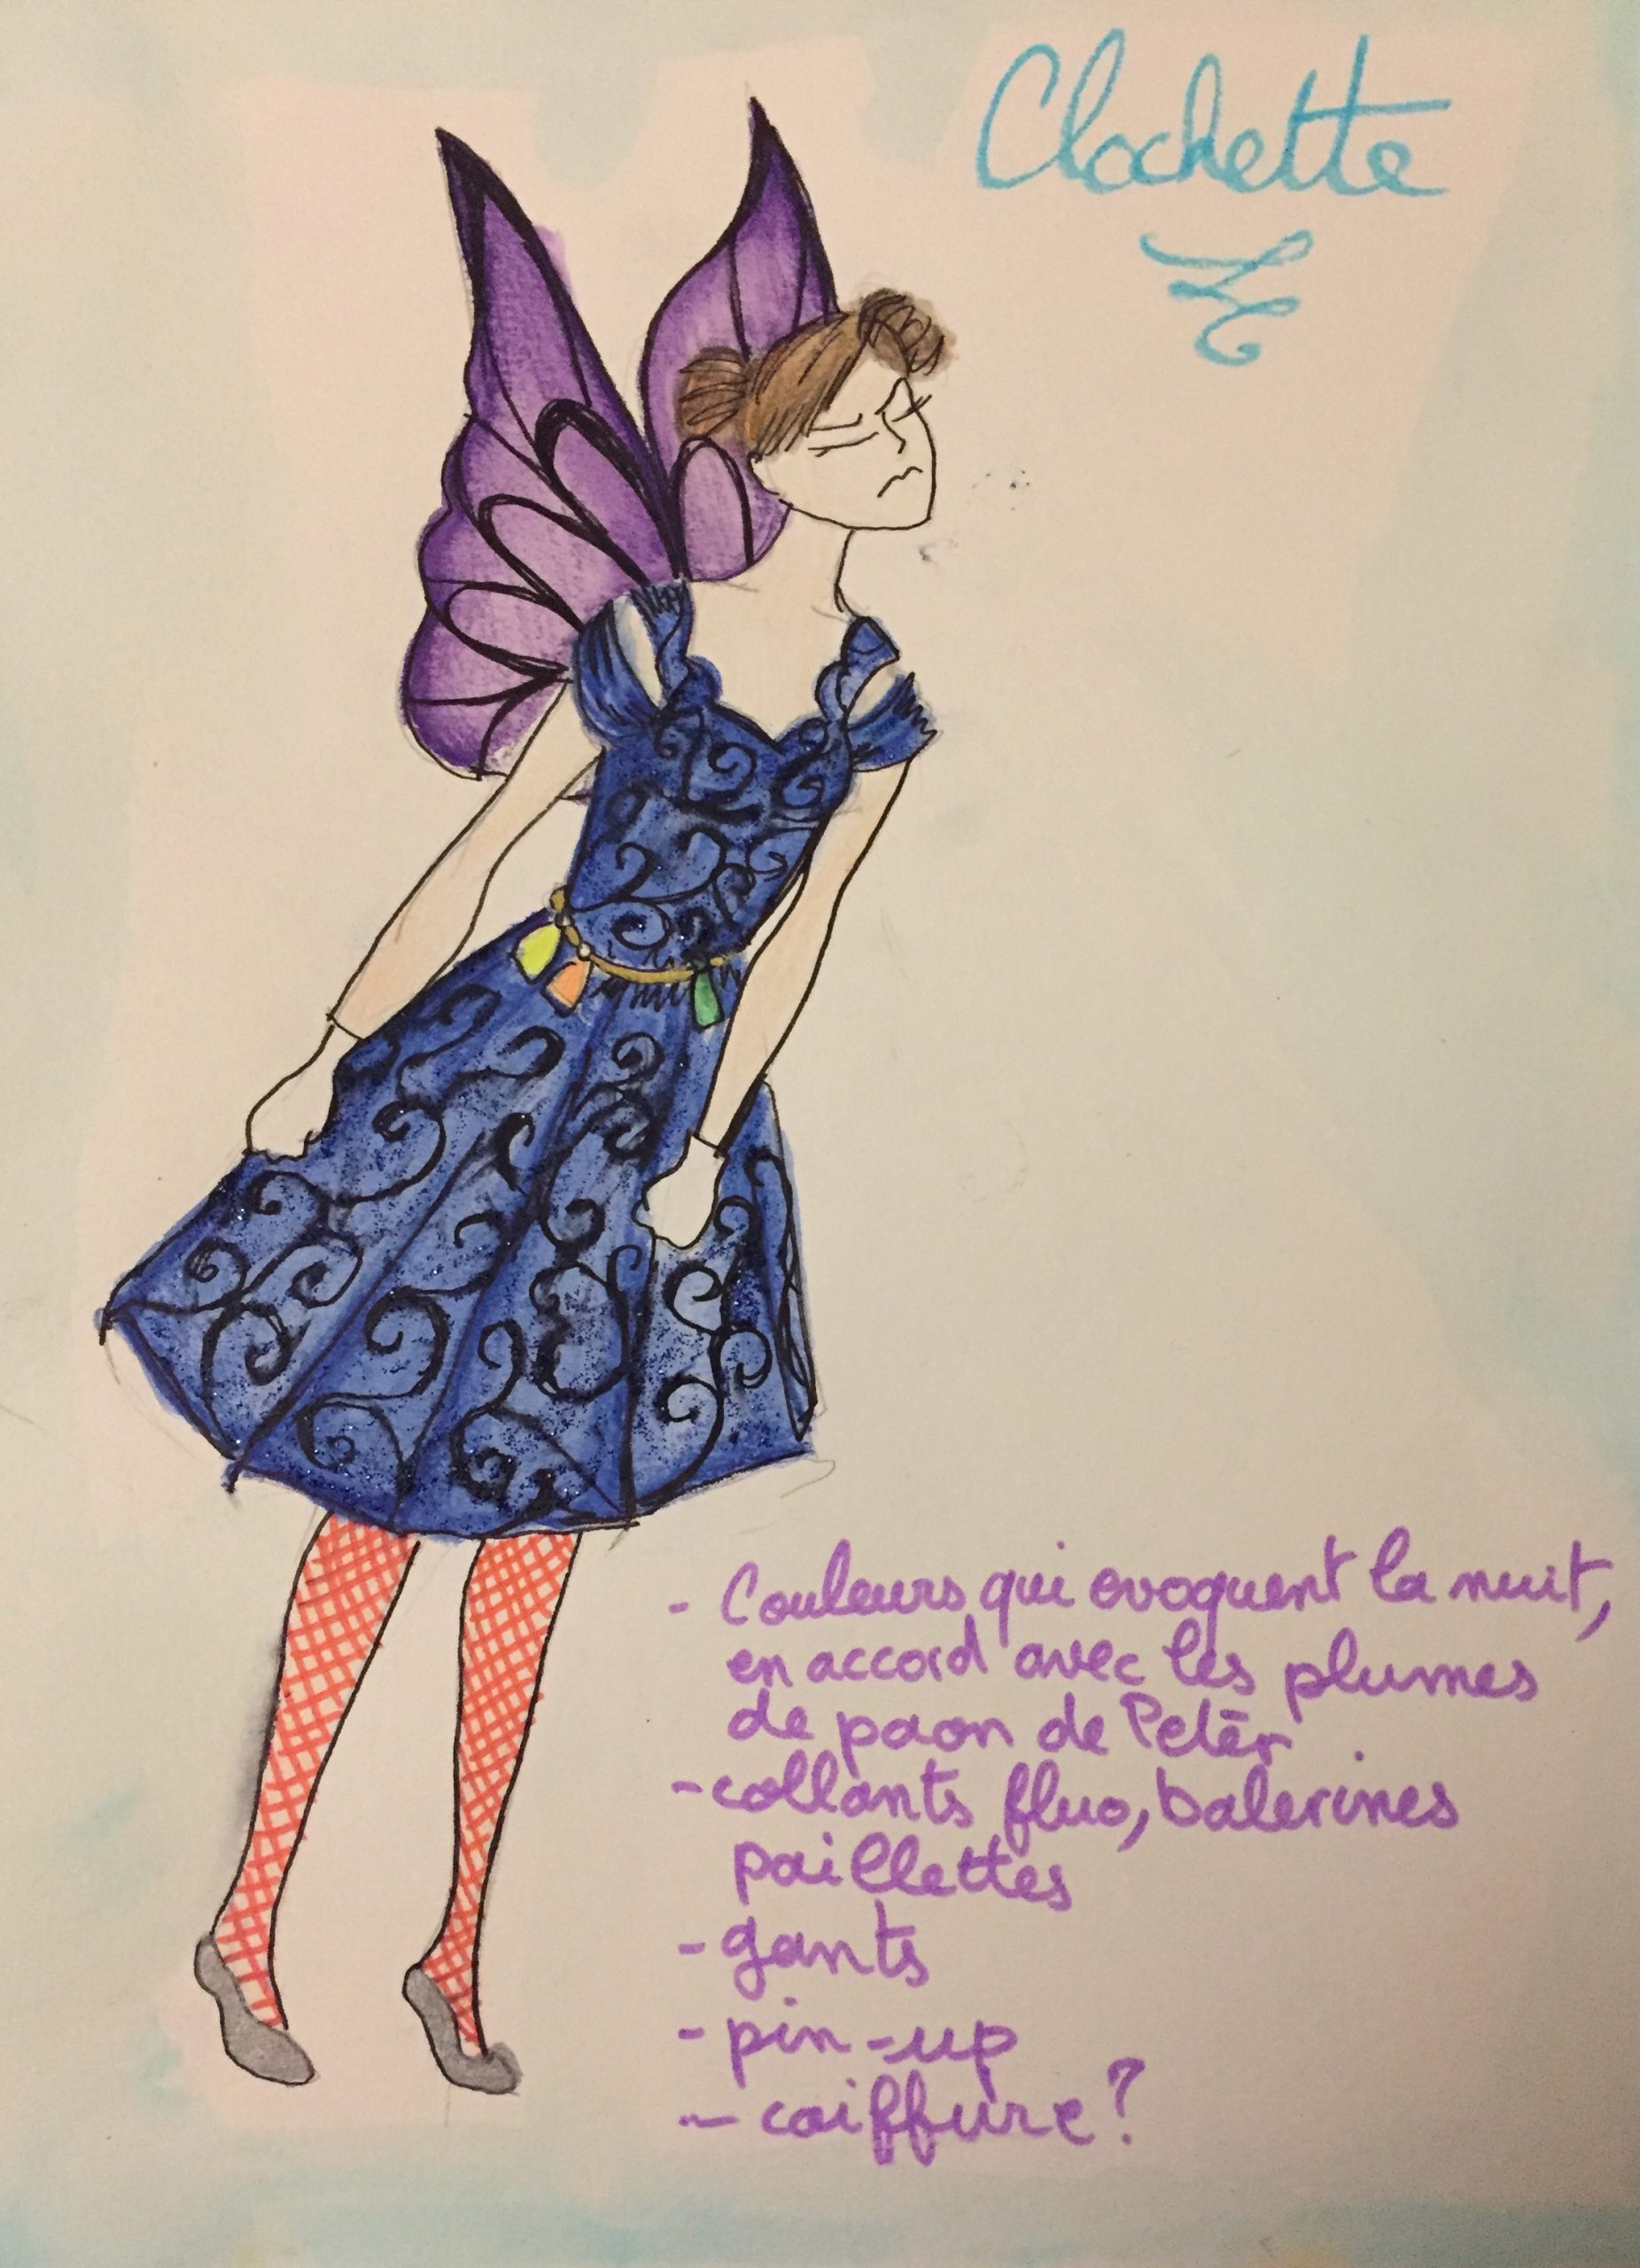 Clochette
- Couleurs qui evoquent la nuit,
en accord avec les plumes
de paon de Peter
- collants fluo, balerines
paillettes
- gants
- pin-up
- coiffure?